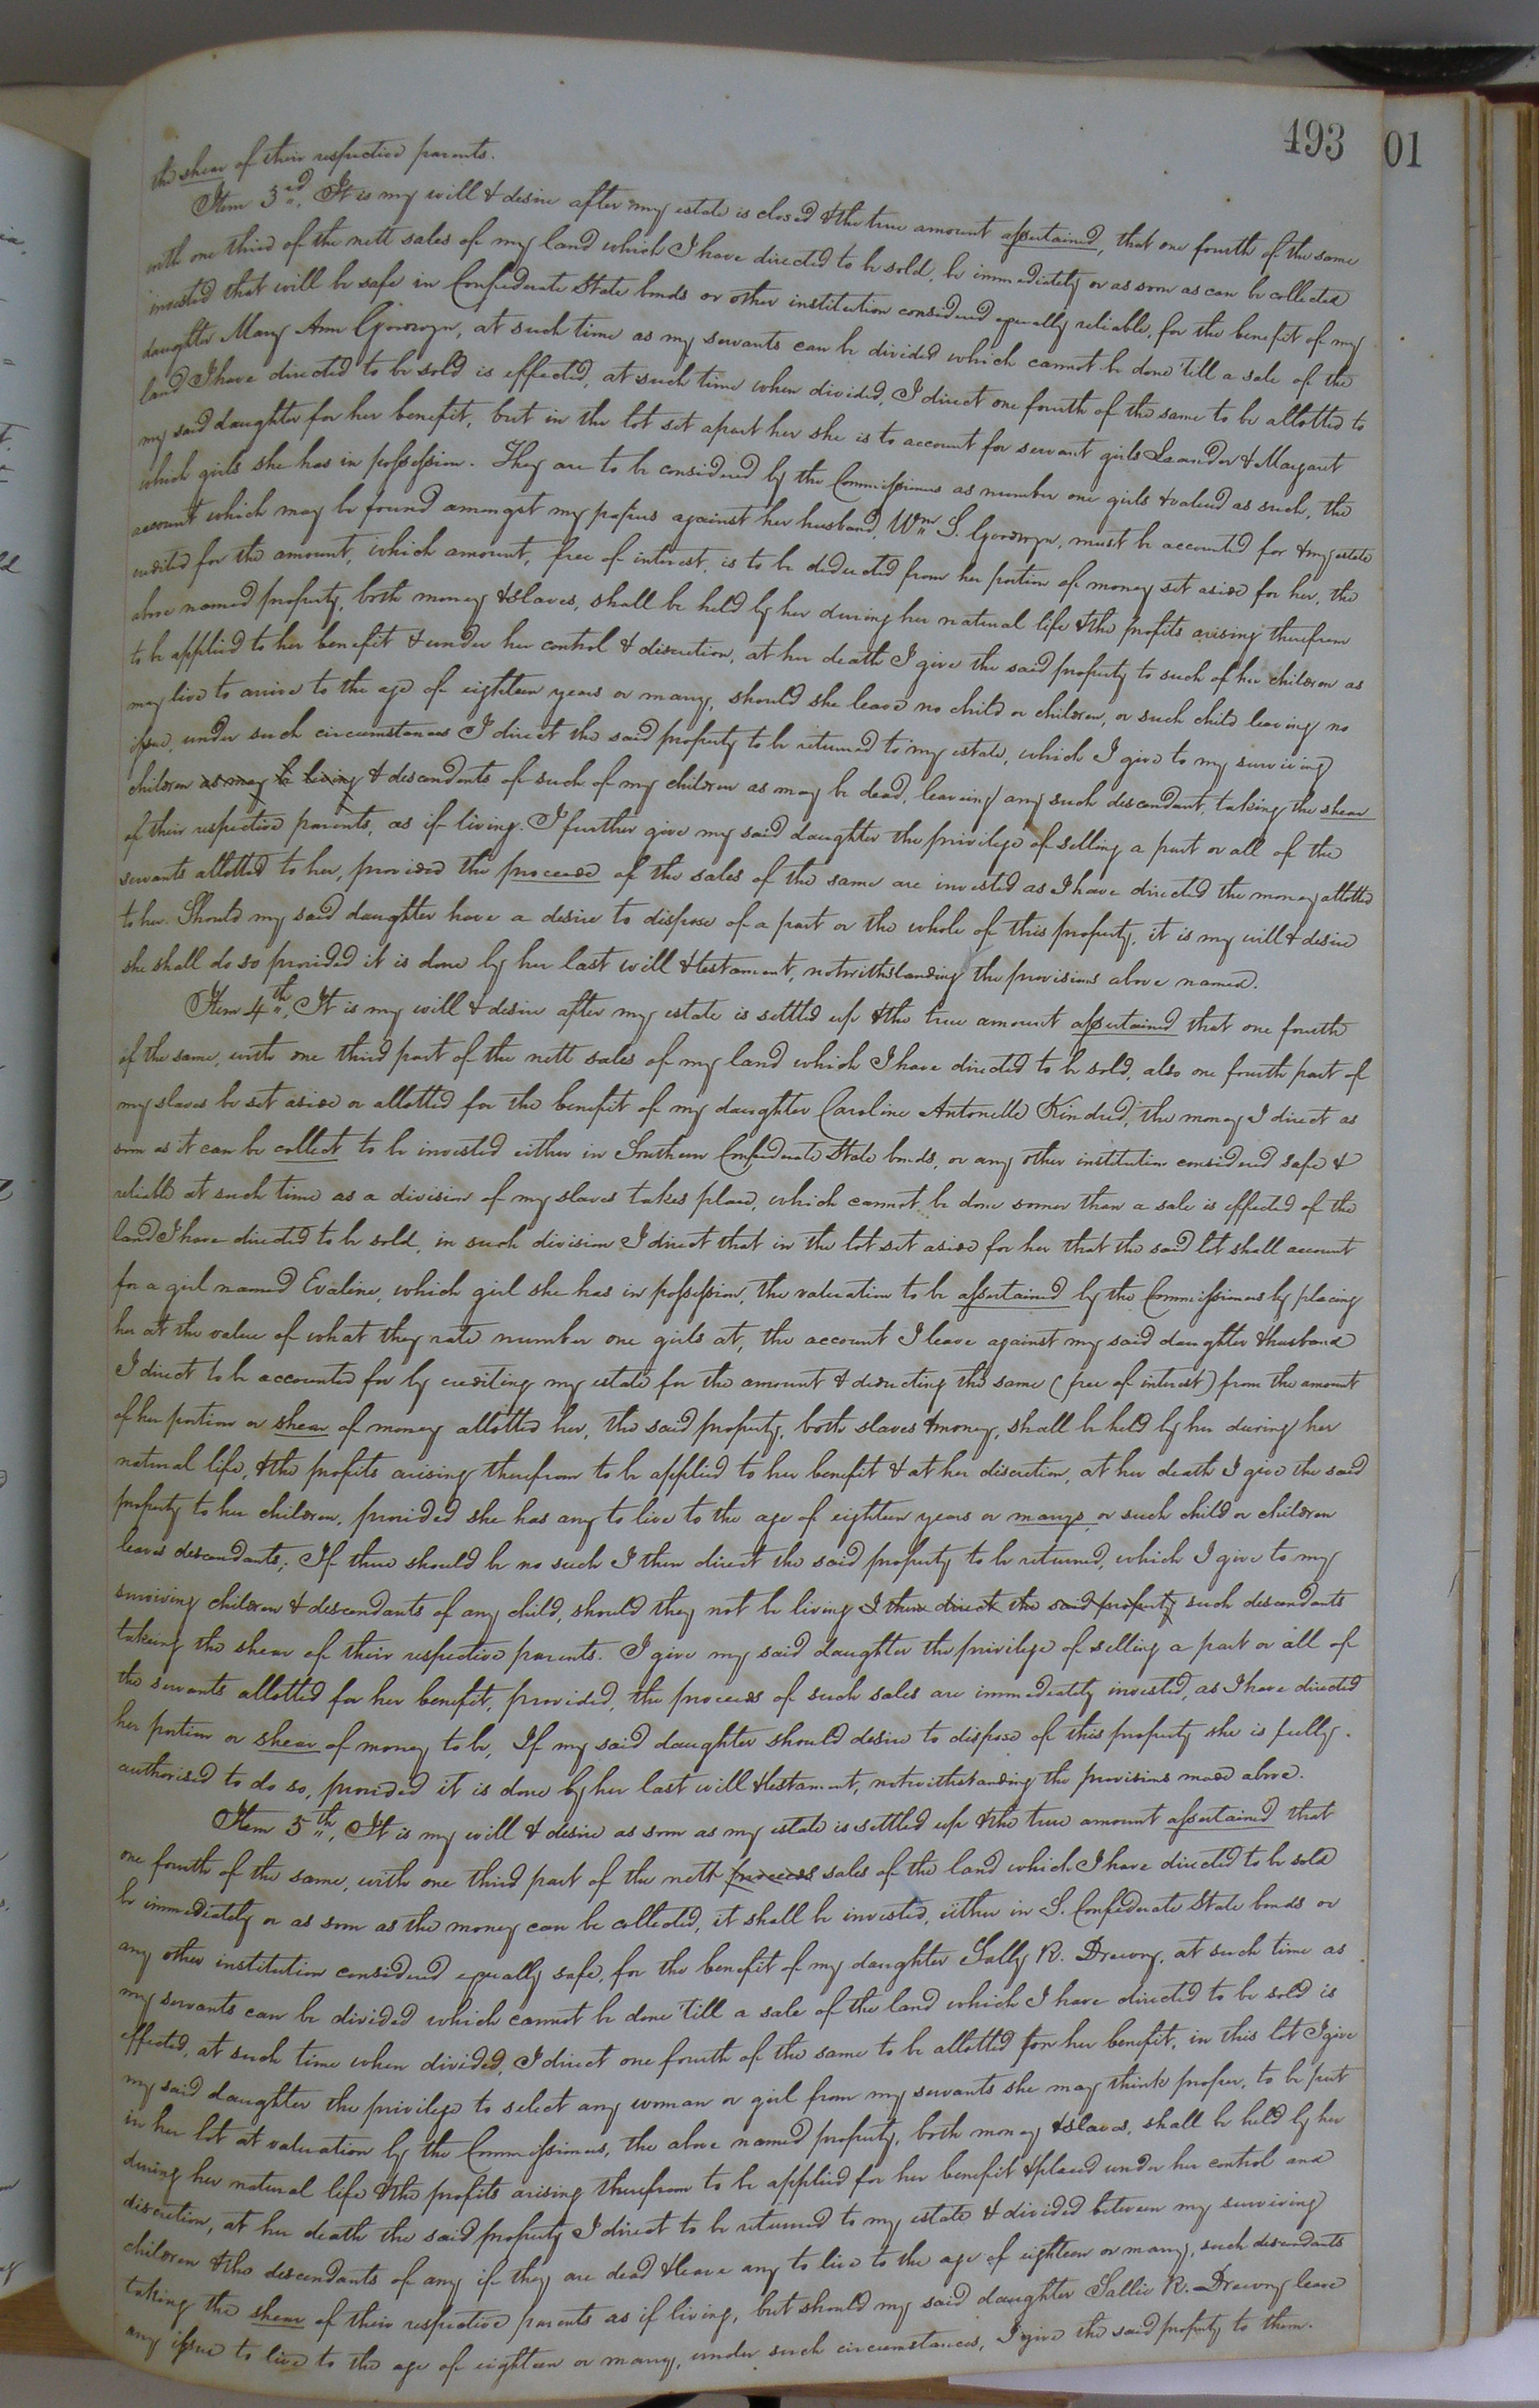 493 01
the shear of their respective parents.
Item 3rd, It is my will & desire after my estate is closed & the true amount assertained, that one fourth of the same
with one third of the nett sales of my land which I have directed to be sold, be immediately or as soon as can be collected
invested that will be safe in Confederate State bonds or other institution considered equally reliable, for the benefit of my
daughter Mary Ann Goodwyn, at such time as my servants can be divided which cannot be done till a sale of the
land I have directed to be sold is effected, at such time when divided, I direct one fourth of the same to be allotted to
my said daughter for her benefit, but in the lot set apart her she is to account for servant girls & Margaret
which girls she has in possession. They are to be considered by the Commissioners as number one girls & valued as such, the
account which may be found amongst my papers against her husband, Wm. S. Goodwyn, must be accounted for & my estate
credited for the amount, which amount, free of interest, is to be deducted from her portion of money set aside for her, the
above named property, both money & slaves, shall be held by her during her natural life & the profits arising therefrom
to be applied to her benefit & under her control & discretion, at her death I give the said property to such of her children as
may live to arrive to the age of eighteen years or marry, should she leave no child or children, or such child leaving no
issue, under such circumstances I direct the said property to be returned to my estate, which I give to my surviving
children as may be living & descendants of such of my children as may be dead, leaveing any such descendant, taking the shear
of their respective parents, as if living. I further give my said daughter the privilege of selling a part or all of the
servants allotted to her, provided the proceeds of the sales of the same are invested as I have directed the money allotted
to her. Should my said daughter have a desire to dispose of a part or the whole of this property, it is my will & desire
she shall do so provided it is done by her last will & testament, notwithstanding the provisions above named.
Item 4th, It is my will & desire after my estate is settled up & the true amount assertained that one fourth
of the same, with one third part of the nett sales of my land which I have directed to be sold, also one fourth part of
my slaves be set aside or allotted for the benefit of my daughter Caroline Antonette Kindred, the money I direct as
soon as it can be collect to be invested either in Southern Confederate State bonds, or any other institution considered safe &
reliable at such time as a division of my slaves takes place, which cannot be done sooner than a sale is effected of the
land I have directed to be sold, in such division I direct that in the lot set aside for her that the said lot shall account
for a girl named Evaline, which girl she has in possession, the valuation to be assertained by the Commissioners by placing
her at the value of what they rate number one girls at, the account I leave against my said daughter & husband
I direct to be accounted for by crediting my estate for the amount & deducting the same (free of interest) from the amount
of her portion or shear of money allotted her, the said property, both slaves & money, shall be held by her during her
natural life, & the profits arising therefrom to be applied to her benefit & at her discretion, at her death I give the said
property to her children, provided she has any to live to the age of eighteen years or marys or such child or children
leaves descendants; If there should be no such I then direct the said property to be returned, which I give to my
surviving children & descendants of any child, should they not be living I then direct the said property such descendants
takeing the shear of their respective parents. I give my said daughter the privilege of selling a part or all of
the servants allotted for her benefit, provided, the proceeds of such sales are immediately invested, as I have directed
her portion or shear of money to be, If my said daughter should desire to dispose of this property she is fully
authorised to do so, provided it is done by her last will & testament, notwithstanding the provisions made above.
Item 5th, It is my will & desire as soon as my estate is settled up & the true amount assertained that
one fourth of the same, with one third part of the nett proceeds sales of the land which I have directed to be sold
be immediately or as soon as the money can be collected, it shall be invested, either in S. Confederate State bonds or
any other institution considered equally safe, for the benefit of my daughter Sally R. Drewry, at such time as
my servants can be divided which cannot be done 'till a sale of the land which I have directed to be sold is
effected, at such time when divided, I direct one fourth of the same to be allotted for her benefit, in this lot I give
my said daughter the privilege to select any woman or girl from my servants she may think proper, to be put
in her lot at valuation by the Commissioners, the above named property, both money & slaves, shall be held by her
during her natural life & the profits arising therefrom to be applied for her benefit & placed under her control and
discretion, at her death the said property I direct to be returned to my estate & divided between my surviving
children & the descendants of any if they are dead & leave any to live to the age of eighteen or marry, such descendants
taking the shear of their respective parents as if living, but should my said daughter Sallie R. Drewry leave
any issue to live to the age of eighteen or marry, under such circumstances, I give the said property to them.